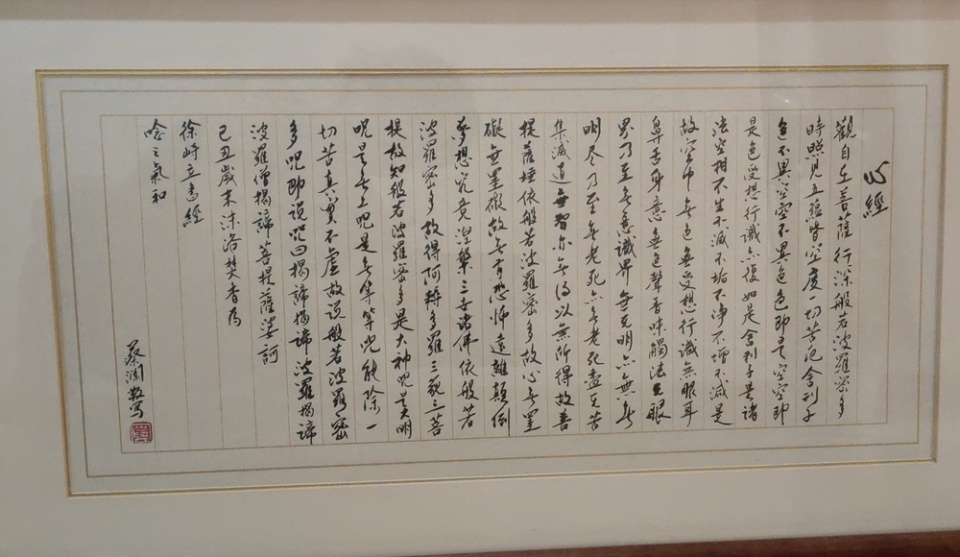 心經
觀自在菩薩行深般若波羅密多
時照見五蘊皆空度一切苦厄舍利子
色不異空空不異色色即是空空即
是色受想行識亦復如是舍利子是諸
法空相不生不滅不垢不淨不增不減是
故空中無色無受想行識無眼耳
鼻舌身意無色聲香味觸法無眼
界乃至無意識界無無明亦無無
明盡乃至無老死亦無老死盡無苦
集滅道無智亦無得以無所得故菩
提薩埵依般若波羅密多故心無罣
礙無罣礙故無有恐怖遠離顛倒
夢想究竟涅槃三世諸佛依般若
波羅密多故得阿耨多羅三藐三菩
提故知般若波羅密多是大神咒是大明
咒是無上咒是無等等咒能除一
切苦真實不虛故說般若波羅密
多咒即說咒曰揭諦揭諦波羅揭諦
波羅僧揭諦菩提薩婆訶
己丑歲末沐浴焚香為
徐峙立書經
唸之氣和
蔡瀾敬寫